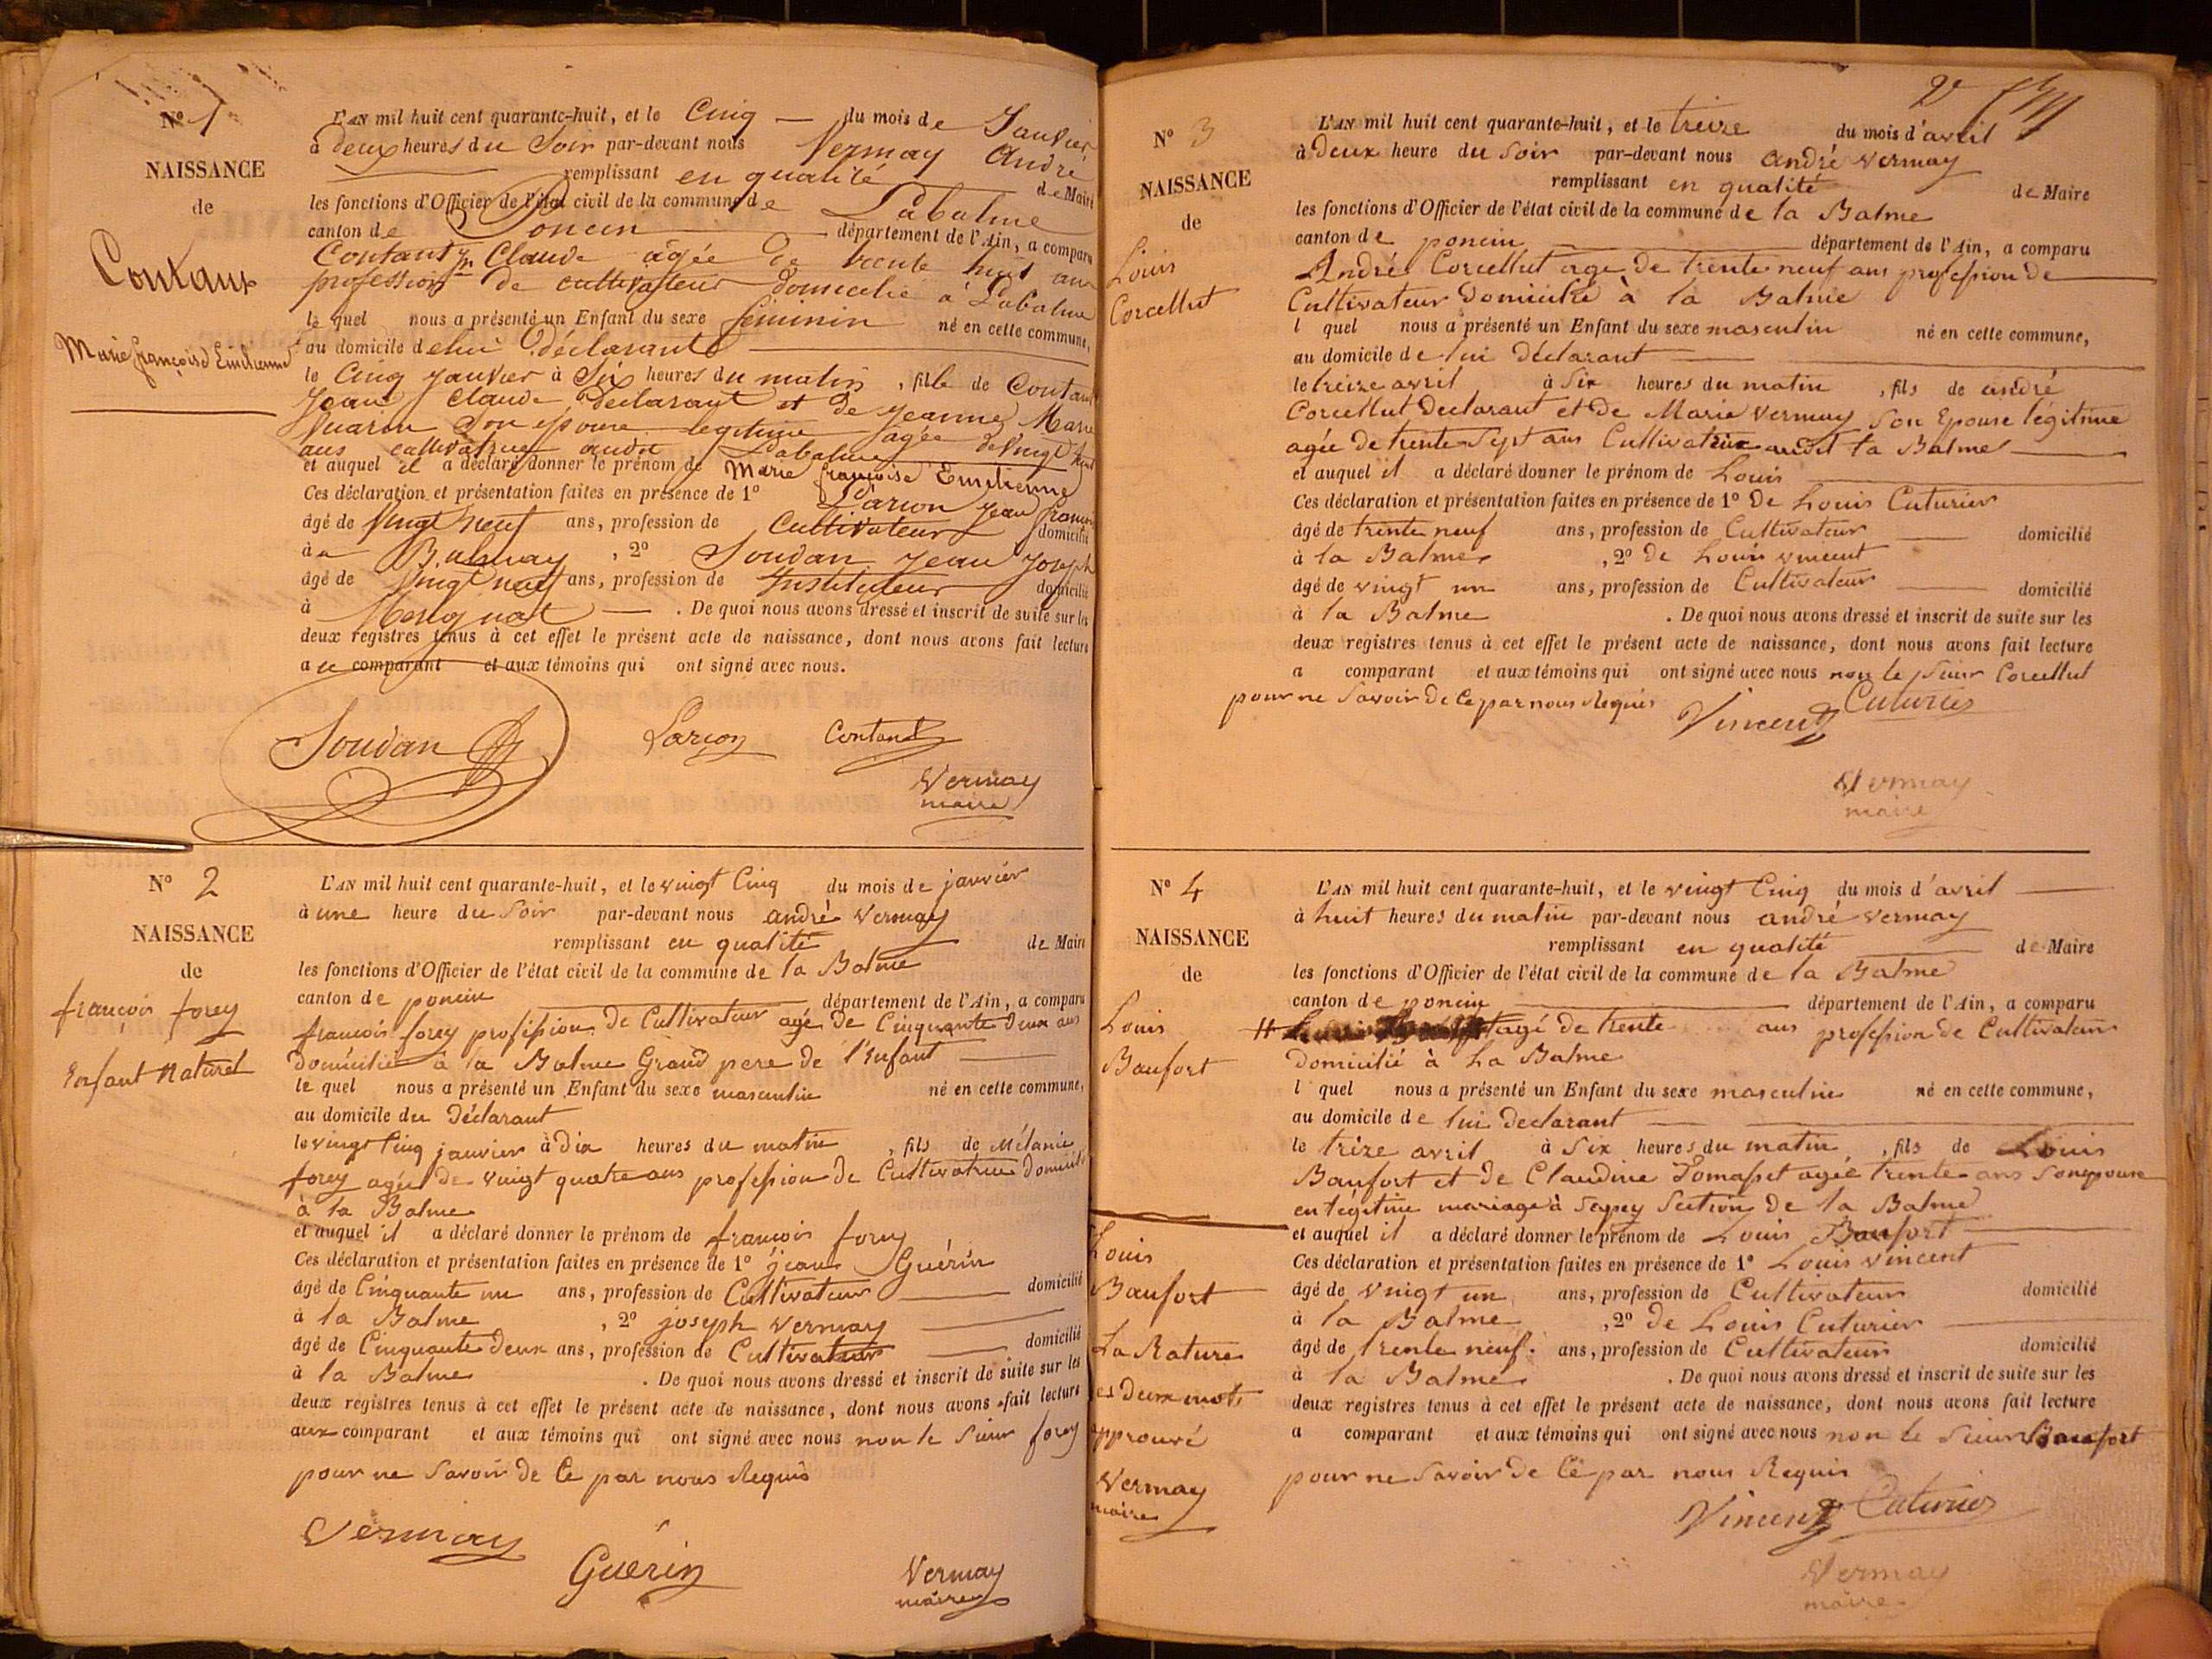 N° 1
NAISSANCE
de
Contant
Marie françoise Emilienne
L'AN mil huit cent quarante-huit, et le Cinq — du mois de Janvier
à deux heures du Soir par-devant nous Vermay André
remplissant en qualité de Maire
les fonctions d'Officier de l'état civil de la commune de Labalme
canton de Poncin département de l'Ain, a comparu
Contant Jn Claude agée de trente huit ans
profession de cultivateur domicilié à Labalme
le quel nous a présenté un Enfant du sexe féminin né en cette commune,
au domicile de lui déclarant
le Cinq Janvier à Six heures du matin, fille de Contant
Jean Claude Déclarant et de Jeanne Marie
son épouse légitime agée de vingt huit
ans cultivatrice audit Labalme
et auquel il a déclaré donner le prénom de Marie françoise Emilienne
Ces déclaration et présentation faites en présence de 1° Larion Jean françois
âgé de Vingt neuf ans, profession de Cultivateur domicilié
à Balmay, 2° Soudan Jean Joseph
âgé de Vingt neuf ans, profession de Instituteur domicilié
à — . De quoi nous avons dressé et inscrit de suite sur les
deux registres tenus à cet effet le présent acte de naissance, dont nous avons fait lecture
au comparant et aux témoins qui ont signé avec nous.
Soudan Larion Contant
Vermay
maire
N° 2
NAISSANCE
de
françois forey
Enfant Naturel
L'AN mil huit cent quarante-huit, et le vingt Cinq du mois de janvier
à une heure du Soir par-devant nous andré Vermay
remplissant en qualité de Maire
les fonctions d'Officier de l'état civil de la commune de la Balme
canton de poncin département de l'Ain, a comparu
françois forey profession de Cultivateur agé de Cinquante Deux ans
Domicilié à la Balme Grand pere de l'Enfant
le quel nous a présenté un Enfant du sexe masculin né en cette commune,
au domicile du Déclarant
le vingt Cinq janvier à Dix heures du matin, fils de Mélanie
forey agée de vingt quatre ans profession de Cultivatrice Domicilié
à la Balme
et auquel il a déclaré donner le prénom de françois forey
Ces déclaration et présentation faites en présence de 1° jean Guérin
âgé de Cinquante un ans, profession de Cultivateur domicilié
à la Balme, 2° joseph Vermay
âgé de Cinquante Deux ans, profession de Cultivateur domicilié
à la Balme . De quoi nous avons dressé et inscrit de suite sur les
deux registres tenus à cet effet le présent acte de naissance, dont nous avons fait lecture
aux comparant et aux témoins qui ont signé avec nous non le Sieur forey
pour ne Savoir de Ce par nous Requis
Vermay
Guérin
Vermay
maire
2e
N° 3
NAISSANCE
de
Louis
Corcellut
L'AN mil huit cent quarante-huit, et le treize du mois d'avril
à deux heure du Soir par-devant nous andré Vermay
remplissant en qualité de Maire
les fonctions d'Officier de l'état civil de la commune de la Balme
canton de poncin département de l'Ain, a comparu
André Corcellut agé de trente neuf ans profession de
Cultivateur Domicilié à la Balme
l quel nous a présenté un Enfant du sexe masculin né en cette commune,
au domicile de lui Déclarant
le treize avril à Six heures du matin, fils de andré
Corcellut Declarant et de Marie Vermay Son Epouse légitime
agée de trente Sept ans Cultivatrice audit la Balme
et auquel il a déclaré donner le prénom de Louis
Ces déclaration et présentation faites en présence de 1° De Louis Cuturier
âgé de trente neuf ans, profession de Cultivateur domicilié
à la Balme, 2° de Louis Vincent
âgé de vingt un ans, profession de Cultivateur domicilié
à la Balme . De quoi nous avons dressé et inscrit de suite sur les
deux registres tenus à cet effet le présent acte de naissance, dont nous avons fait lecture
a comparant et aux témoins qui ont signé avec nous non le Sieur Corcellut
pour ne Savoir de Ce par nous Requis
Vincent Cuturier
Vermay
maire
N° 4
NAISSANCE
de
Louis
Baufort
Louis
Baufort
La Rature
es Deux mots
approuvé
Vermay
maire
L'AN mil huit cent quarante-huit, et le vingt Cinq du mois d'avril
à huit heures du matin par-devant nous andré Vermay
remplissant en qualité de Maire
les fonctions d'Officier de l'état civil de la commune de la Balme
canton de poncin département de l'Ain, a comparu
agé de trente ans profession de Cultivateur
Domicilié à La Balme
l quel nous a présenté un Enfant du sexe masculin né en cette commune,
au domicile de lui Declarant
le trize avril à Six heures du matin, fils de Louis
Baufort et de Claudine agée trente ans Son épouse
en légitime mariage à Section de la Balme
et auquel il a déclaré donner le prénom de Louis Baufort
Ces déclaration et présentation faites en présence de 1° Louis Vincent
âgé de vingt un ans, profession de Cultivateur domicilié
à la Balme, 2° de Louis Cuturier
âgé de trente neuf. ans, profession de Cultivateur domicilié
à la Balme . De quoi nous avons dressé et inscrit de suite sur les
deux registres tenus à cet effet le présent acte de naissance, dont nous avons fait lecture
a comparant et aux témoins qui ont signé avec nous non le Sieur Baufort
pour ne Savoir de Ce par nous Requis
Vincent Cuturier
Vermay
maire